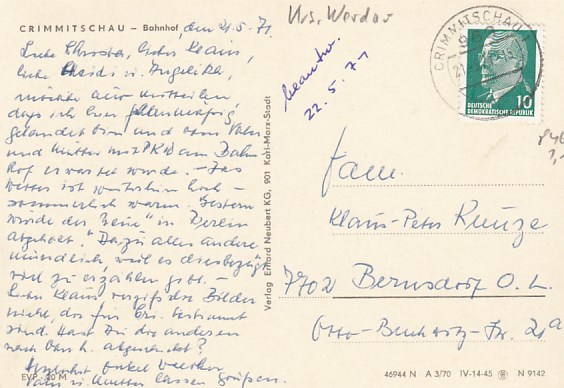 CRIMMITSCHAU — Bahnhof, den 21.5.71
Liebe Christa, lieber Klaus,
liebe Heidi u. Angelika,
möchte nur mitteilen,
daß ich hier planmäßig
gelandet bin und von Vater
und Mutter mit PKW am Bahn
hof erwartet wurde. – Das
Wetter ist weiterhin hoch –
sommerlich warm. Gestern
wurde der "Beue" in Berlin
abgeholt. Dazu alles andere
mündlich, weil es diesbezügl.
viel zu erzählen gibt. –
Lieber Klaus, vergiß die Bilder
nicht, das für bri. bestimmt
sind. Hast Du die anderen
nach abgeschickt?
Herzlichst Onkel Werther
Vater u. Mutter lassen grüßen.
EVP -,20 M
Verlag Erhard Neubert KG, 901 Karl-Marx-Stadt
Urs. Werdau
beantw.
22.5.71
CRIMMITSCHAU 1
DEUTSCHE
DEMOKRATISCHE REPUBLIK
10
Fam.
Klaus-Peter Kunze
7702 Bernsdorf O.L.
Otto-Buchwitz-Str. 21a
46944 N A 3/70 IV-14-45 N 9142